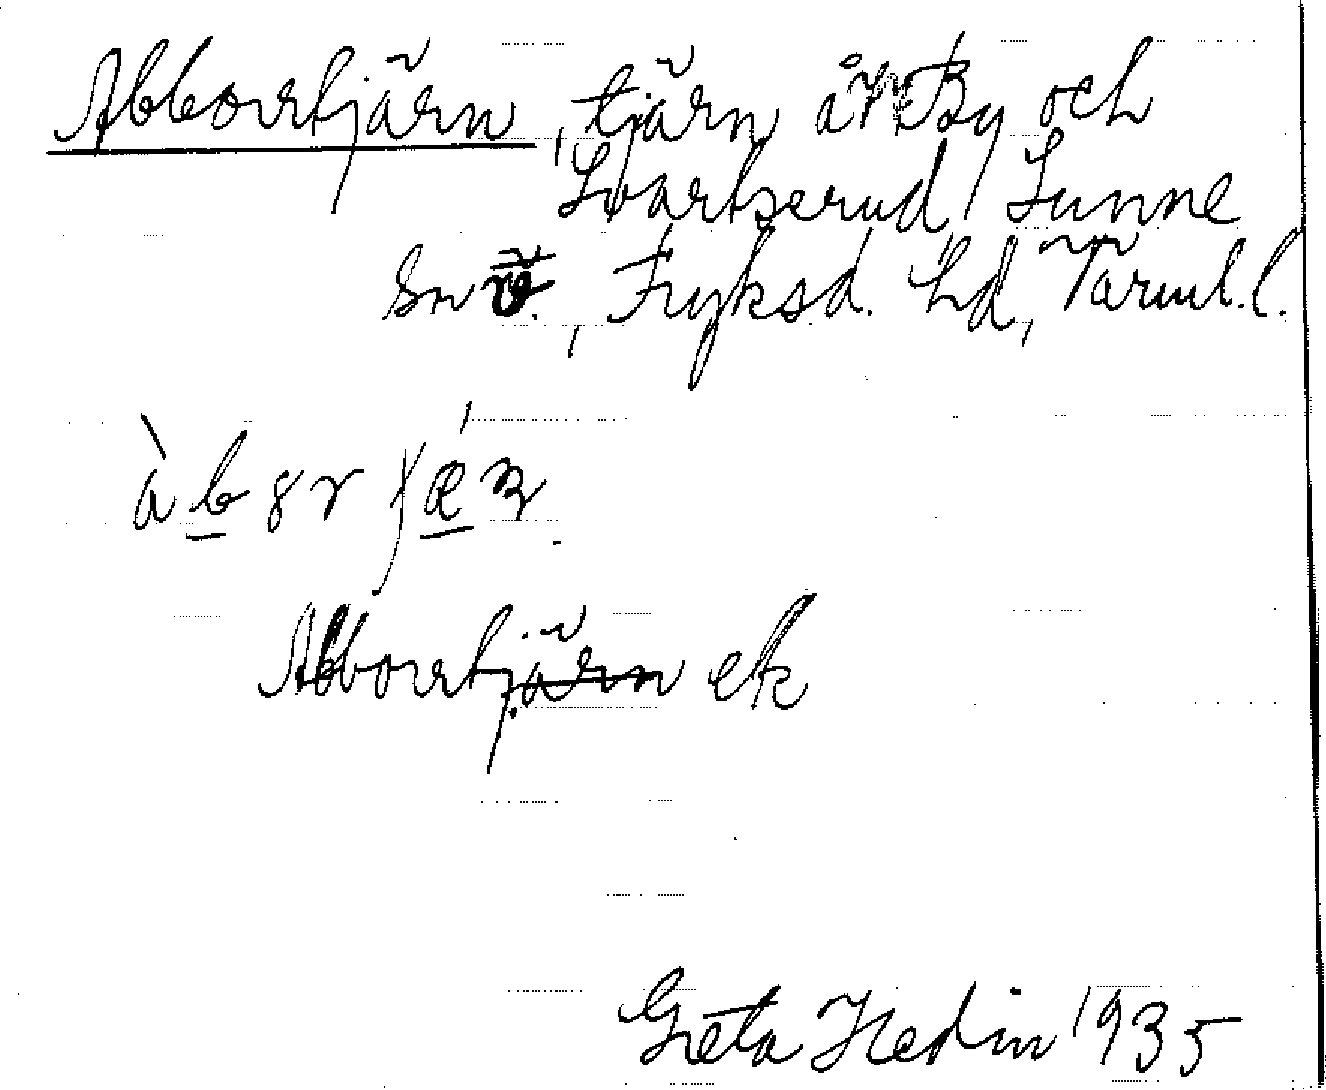 Abborrtjärn, tjärn å By och
Svartserud, Sunne
sn, Fryksd. hd, Värml. l.
Abborrtjärn ek
Greta Hedin 1935